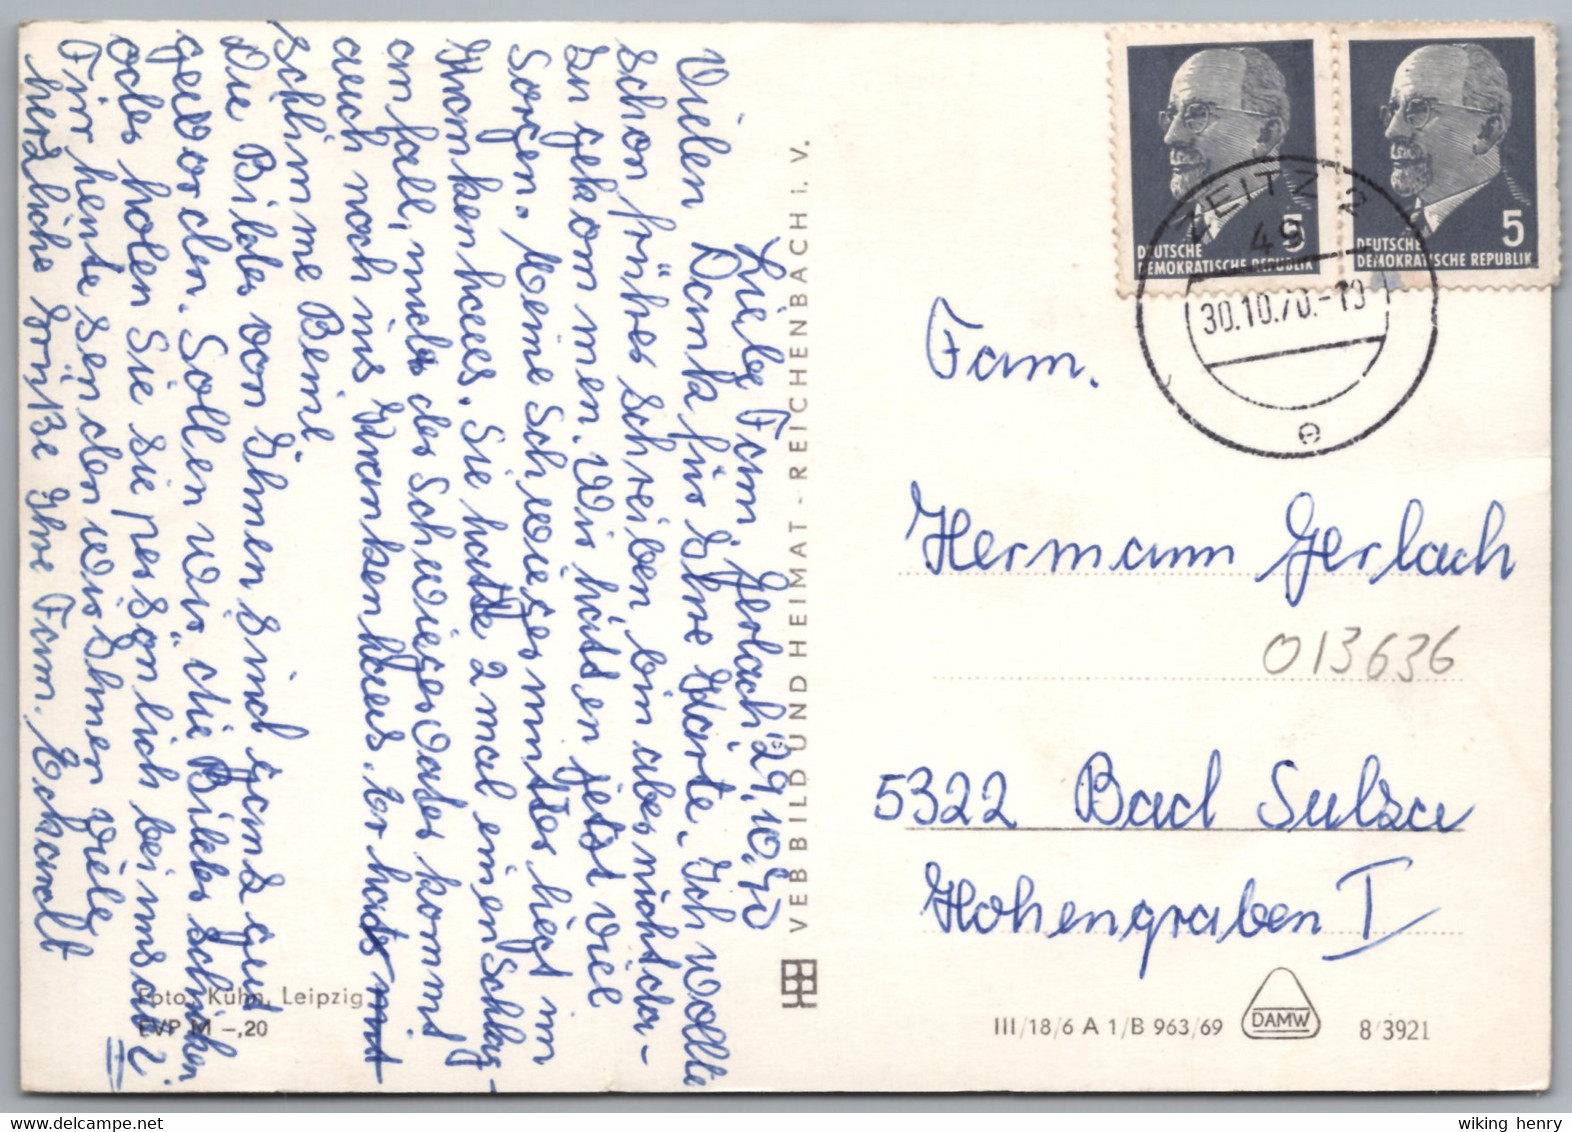 Liebe Fam. Gerlach 29.10.70
Vielen Dank für Ihre Karte. Ich wollte
schon früher schreiben bin aber nicht da-
zu gekommen. Wir hatten jetzt viel
Sorgen. Meine Schwiegermutter liegt im
Krankenhaus. Sie hatte 2 mal einen Schlag-
anfall, und der Schwiegervater kommt
auch noch ins Krankenhaus. Er hat
schlimme Beine
Die Bilder von Ihnen sind ganz gut
geworden. Sollen wir die Bilder schicken
oder holen Sie sie persönlich bei uns ab?
Für heute senden wir Ihnen viele
herzliche Grüße Ihre Fam. Eckardt
Foto: Kühn, Leipzig
EVP M –,20
VEB BILD UND HEIMAT - REICHENBACH I. V.
DEUTSCHE
DEMOKRATISCHE REPUBLIK
5
DEUTSCHE
DEMOKRATISCHE REPUBLIK
5
ZEITZ 2
49
30.10.70.-19
e
Fam.
Hermann Gerlach
013636
5322 Bad Sulza
Hohengraben I
III/18/6 A 1/B 963/69
DAMW
8/3921
wiking henry